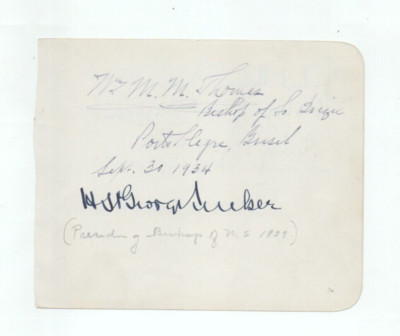 Wm M. M. Thomas
Bishop of So. Brazil
Porto Alegre, Brasil
Sept. 30 1934
H St George Tucker
(Presiding Bishop of U.S 1939)